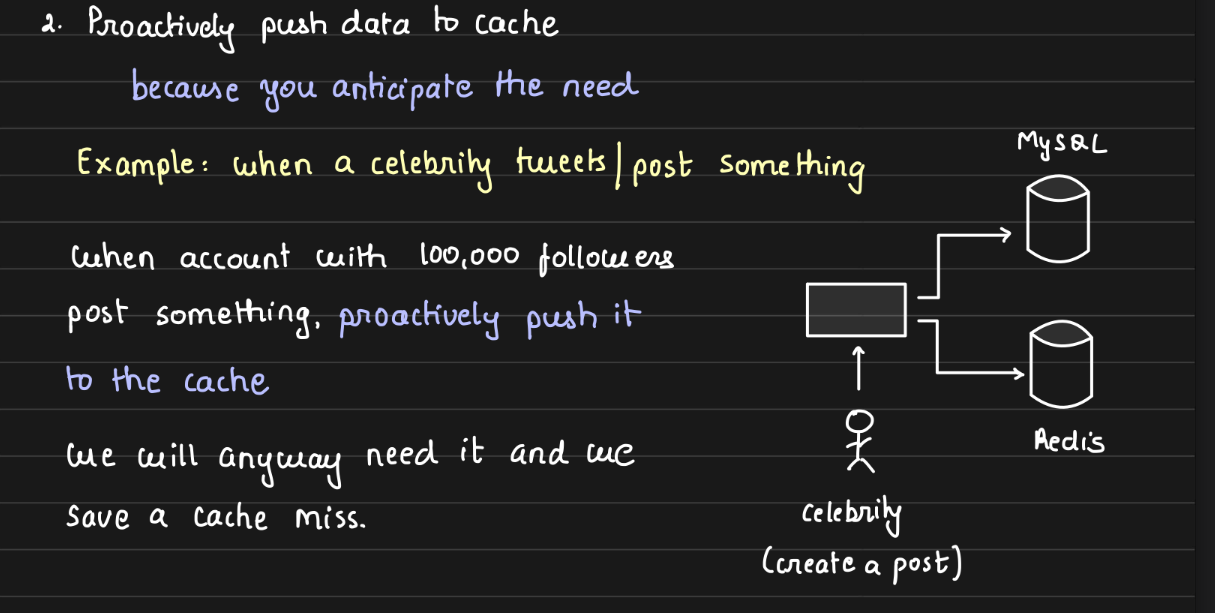 2. Proactively push data to cache
because you anticipate the need
Example: when a celebrity tweets/post something
when account with 100,000 followers
post something, proactively push it
to the cache
we will anyway need it and we
save a cache miss.
MySQL
Redis
celebrity
(create a post)